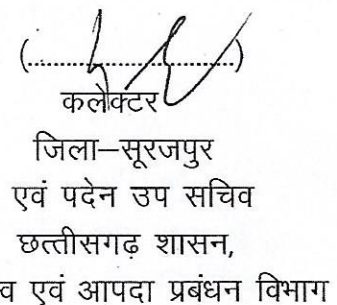 (........................)
कलेक्टर
जिला–सूरजपुर
एवं पदेन उप सचिव
छत्तीसगढ़ शासन,
एवं आपदा प्रबंधन विभाग